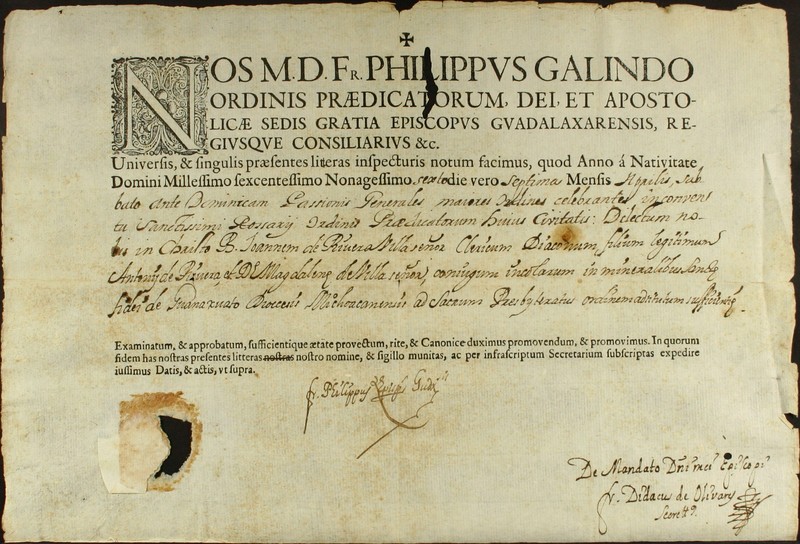 NOS M.D. FR. PHILIPPVS GALINDO
ORDINIS PRÆDICATORUM, DEI, ET APOSTO-
LICÆ SEDIS GRATIA EPISCOPVS GVADALAXARENSIS, RE-
GIVSQVE CONSILIARIVS &c.
Universis, & singulis præsentes literas inspecturis notum facimus, quod Anno á Nativitate
Domini Millessimo sexcentessimo Nonagessimo sexto die vero septima Mensis Aprilis, Sab-
bato ante Dominicam Passionis Generales maiores Ordines celebrantes in conven
tu Sanctissimi Rossarij Ordinis Prædicatorum huius Civitatis: Dilectum no-
bis in Christo B. Joannem de Rivera Villaseñor Clericum Diaconum, filium legitimum
Antonij de Rivera, et D. Magdalenæ de Villaseñor, coniugum incolarum in mineralibus Sanctæ
fidei de Guanaxuato Diocecis Michoacanensis ad Sacrum Presbyteratus ordinem
Examinatum, & approbatum, sufficientique ætate provectum, rite, & Canonice duximus promovendum, & promovimus. In quorum
fidem has nostras presentes litteras nostras nostro nomine, & sigillo munitas, ac per infrascriptum Secretarium subscriptas expedire
iussimus Datis, & actis, vt supra.
fr. Philippus
De Mandato Dni mei Episcopi
fr. Didacus de Olivares
Secret.